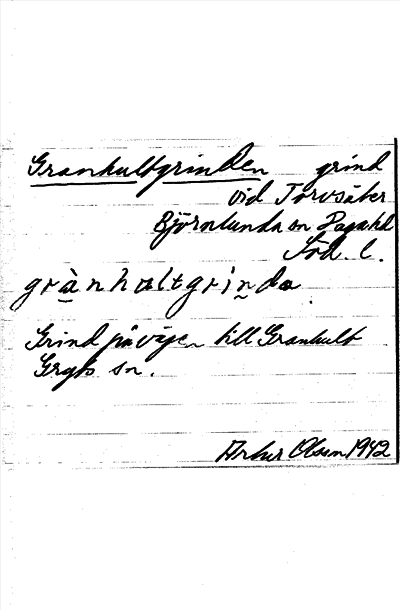 Granhultgrinden grind
vid Torvsäter
Björnlunda sn Daga hd
Söd. l.
grànhultgrinda
Grind på vägen till Granhult
Gryts sn.
Artur Olsson 1942